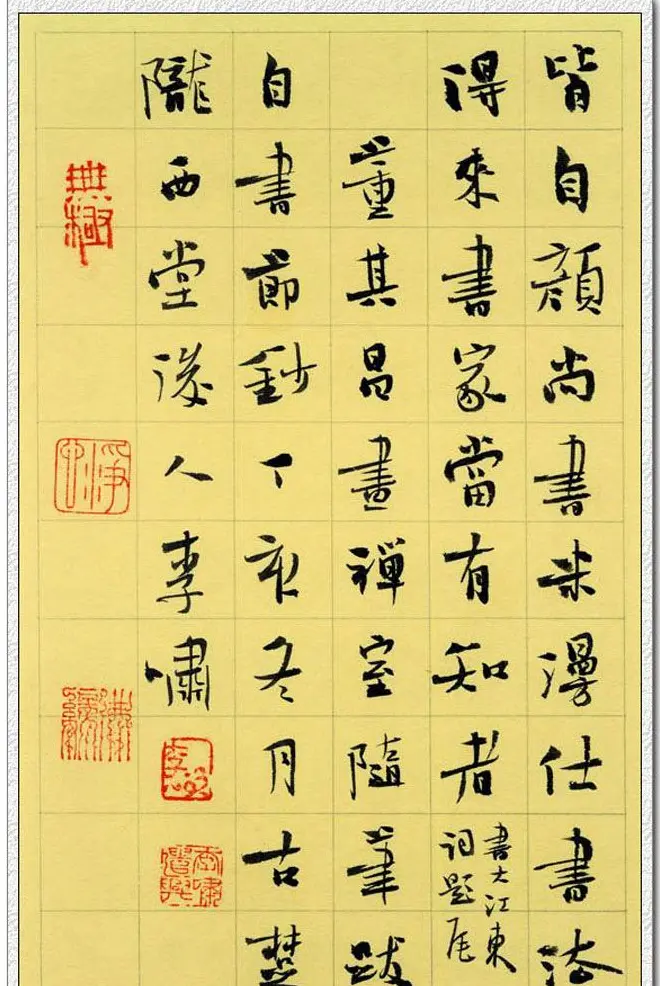 皆自顔尚書米漫仕書法
得來書家當有知者
書大江東
詞題尾
董其昌畫禪室隨筆跋
自書節鈔丁亥冬月古楚
隴西堂後人李嘯
無極